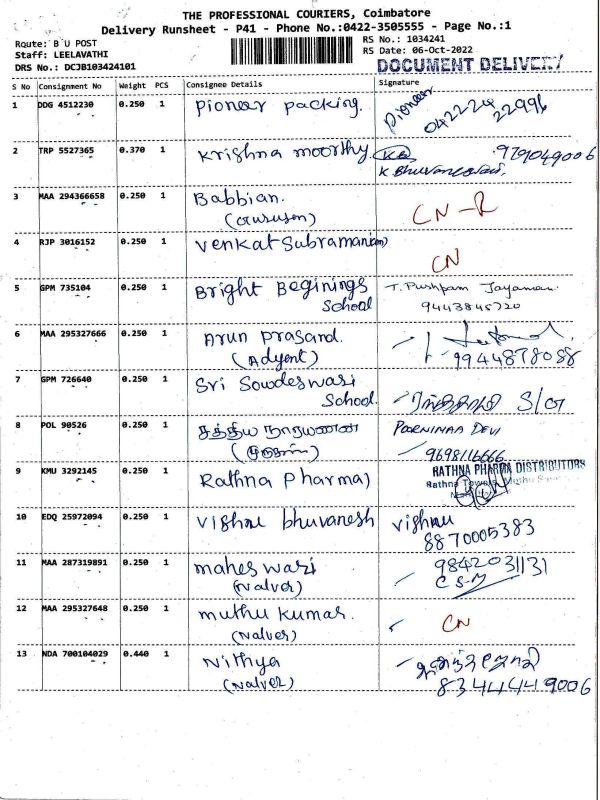 THE PROFESSIONAL COURIERS, Coimbatore
Delivery Runsheet - P41 - Phone No.:0422-3505555 - Page No.:1
Route: B U POST
RS No.: 1034241
Staff: LEELAVATHI
RS Date: 06-Oct-2022
DRS No.: DCJB103424101
DOCUMENT DELIVERY
S No Consignment No Weight PCS Consignee Details Signature
1 DDG 4512230 0.250 1 Pioneer packing. Pioneer
0422-24 22996
2 TRP 5527365 0.370 1 Krishna moorthy 979049006
K Bhuvaneswari
3 MAA 294366658 0.250 1 Babbian. CN-R
4 RJP 3016152 0.250 1 Venkat Subramani CN
5 GPM 735104 0.250 1 Bright Beginings T. Pushpam Jayaman
School 9443845720
6 MAA 295327666 0.250 1 Arun prasand.
(Adyent) 9944878088
7 GPM 726640 0.250 1 Sri Sowdeswari
School.
8 POL 90526 0.250 1 சத்திய நாராயணன் POORNIMAA DEVI
9698116666
9 KMU 3292145 0.250 1 Rathna Pharma) RATHNA PHARMA DISTRIBUTORS
Rathna Towers,
10 EDQ 25972094 0.250 1 Vishnu bhuvanesh Vishnu
8870005383
11 MAA 287319891 0.250 1 maheswari 9842031131
(Nalver)
12 MAA 295327648 0.250 1 muthu kumar. CN
(Nalver)
13 NDA 700104029 0.440 1 Nithya
(Nalver) 8344449006